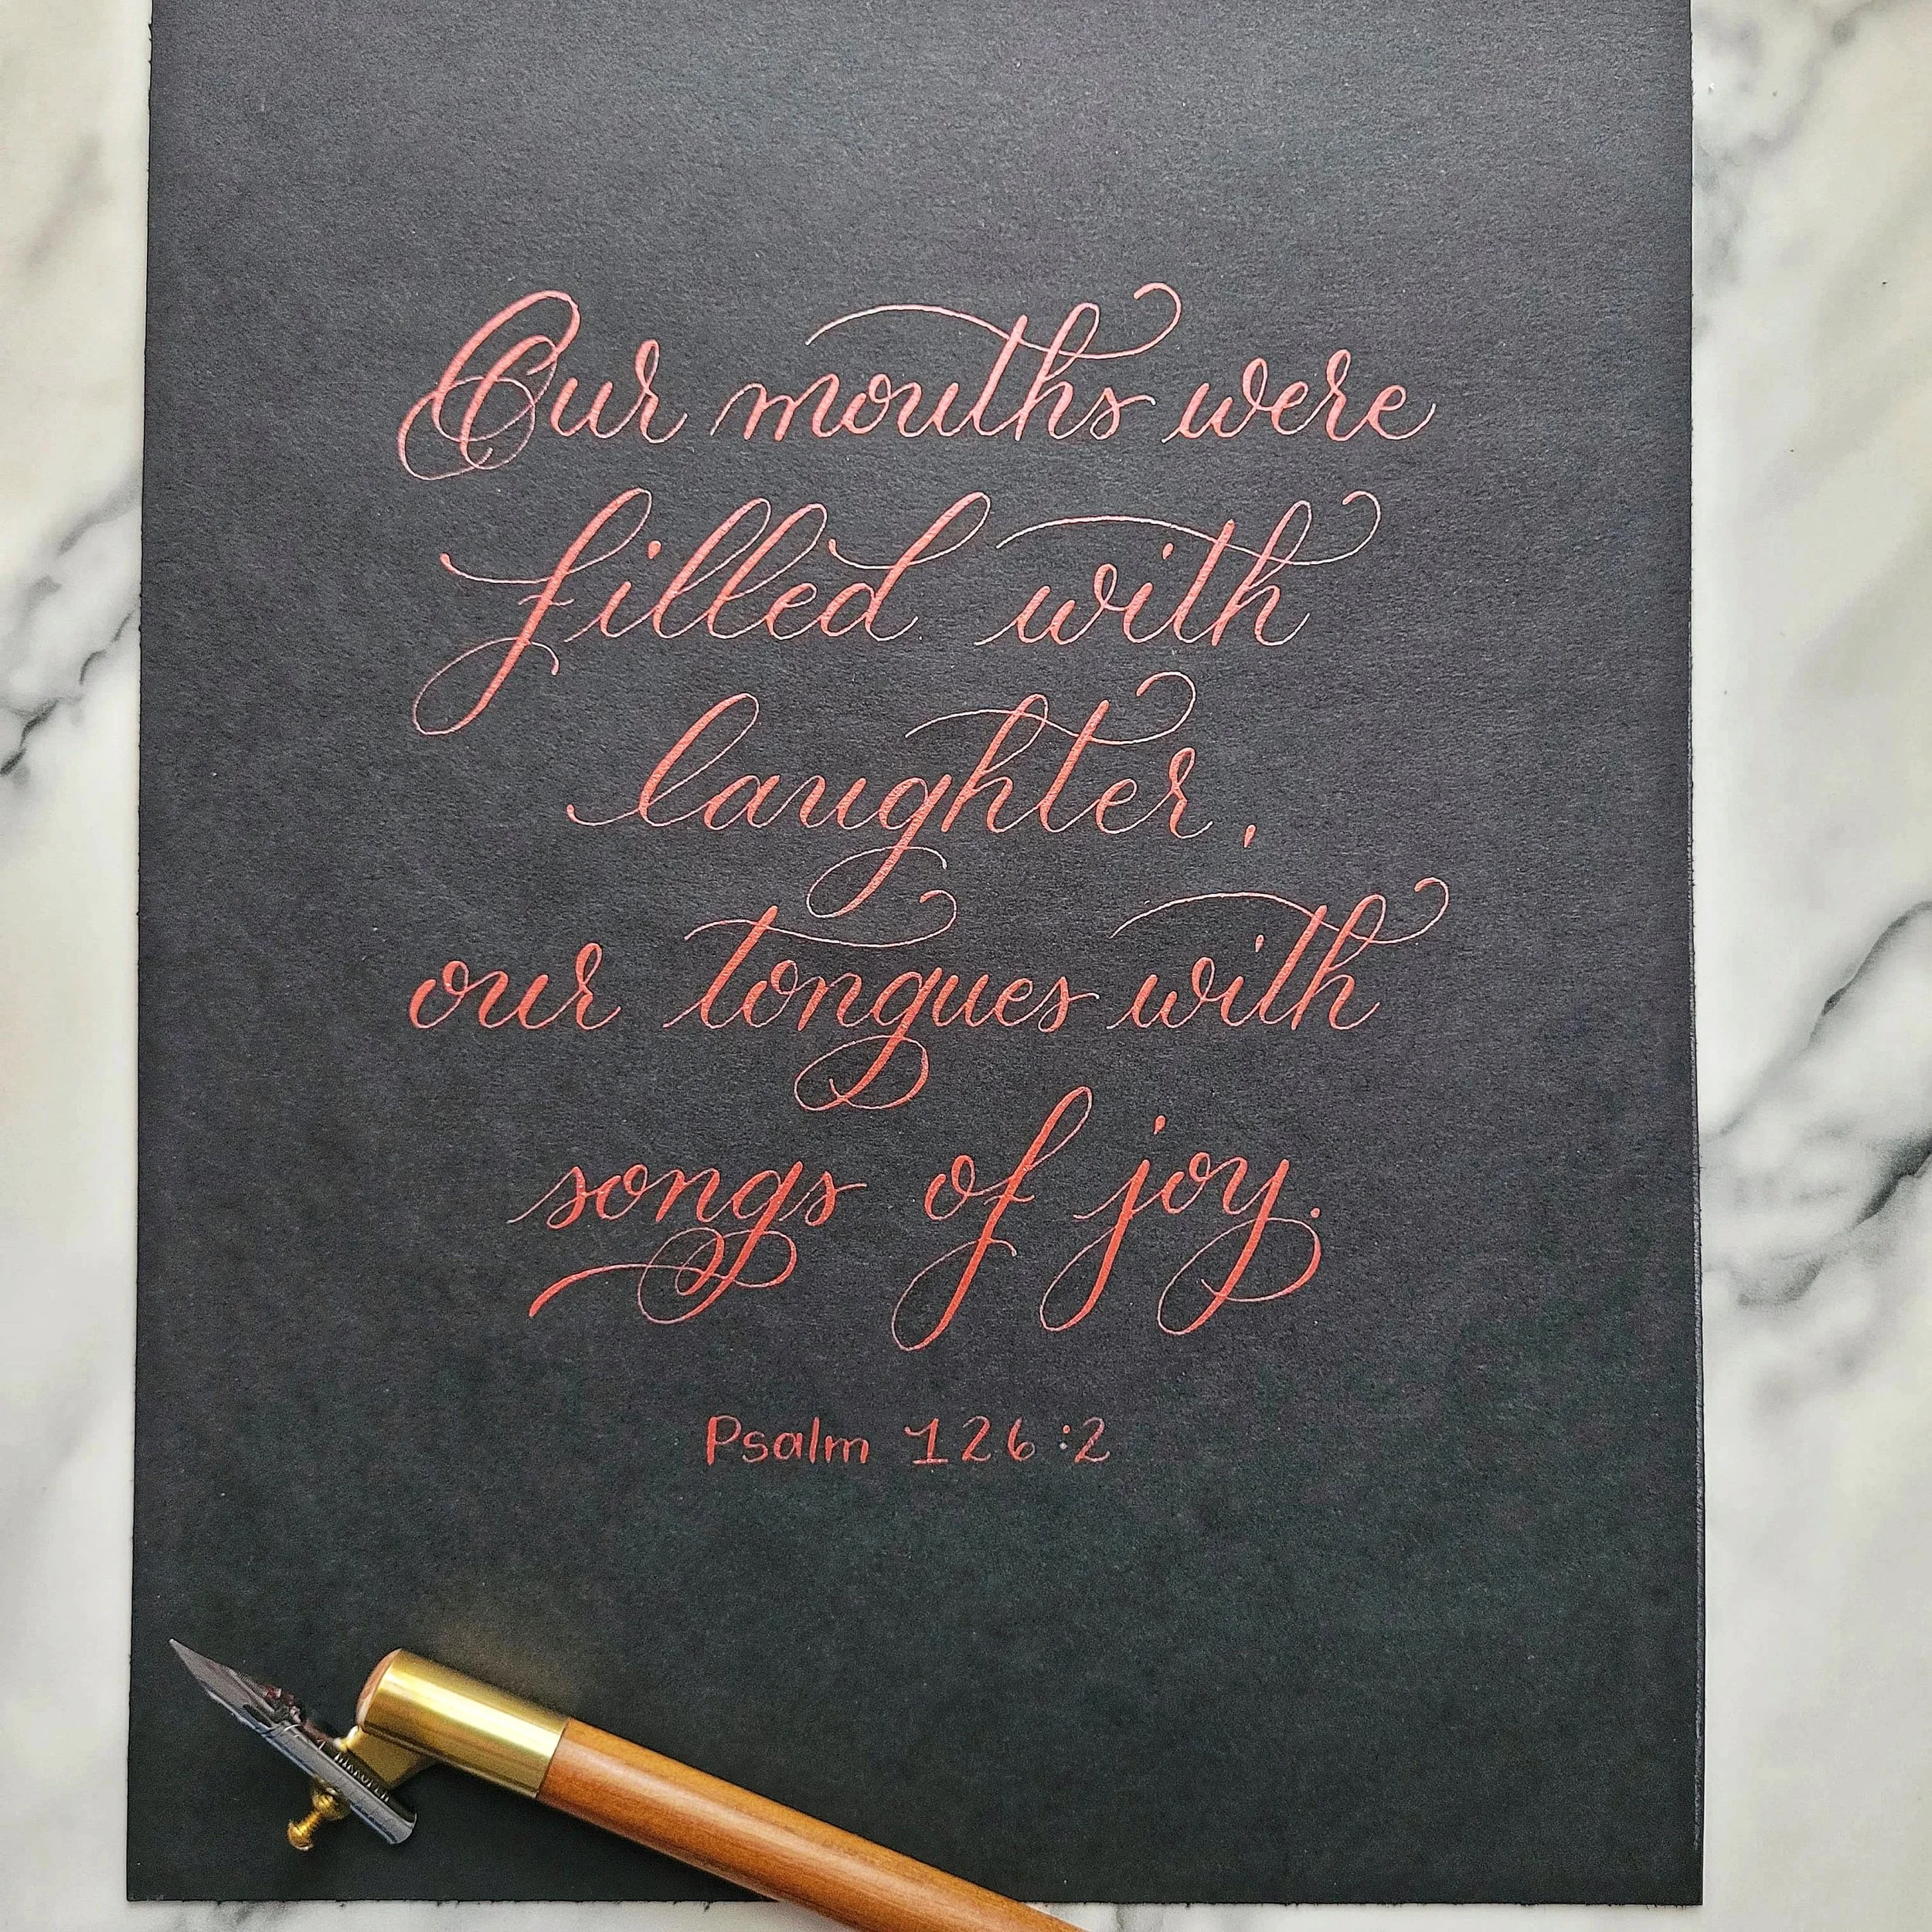 Our mouths were
filled with
laughter,
our tongues with
songs of joy.
Psalm 126:2